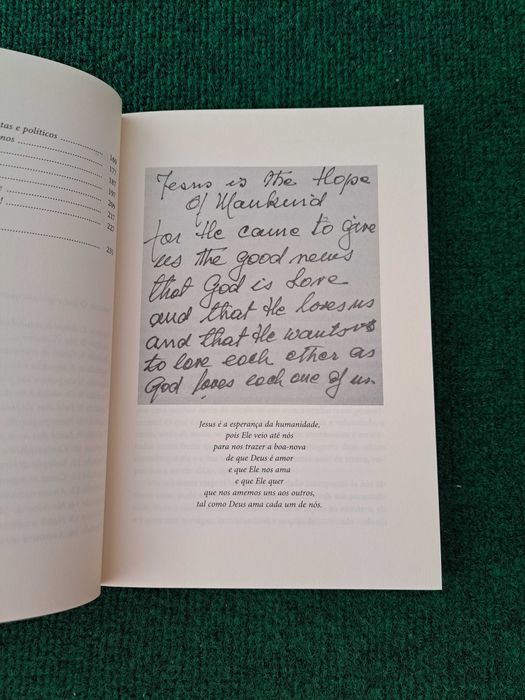 tas e políticos
nos
169
171
187
197
209
217
227
Jesus is the Hope
Of Mankind
for He came to give
us the good news
that God is Love
and that He loves us
and that He wants us
to love each other as
God loves each one of us.
Jesus é a esperança da humanidade,
pois Ele veio até nós
para nos trazer a boa-nova
de que Deus é amor
e que Ele nos ama
e que Ele quer
que nos amemos uns aos outros,
tal como Deus ama cada um de nós.